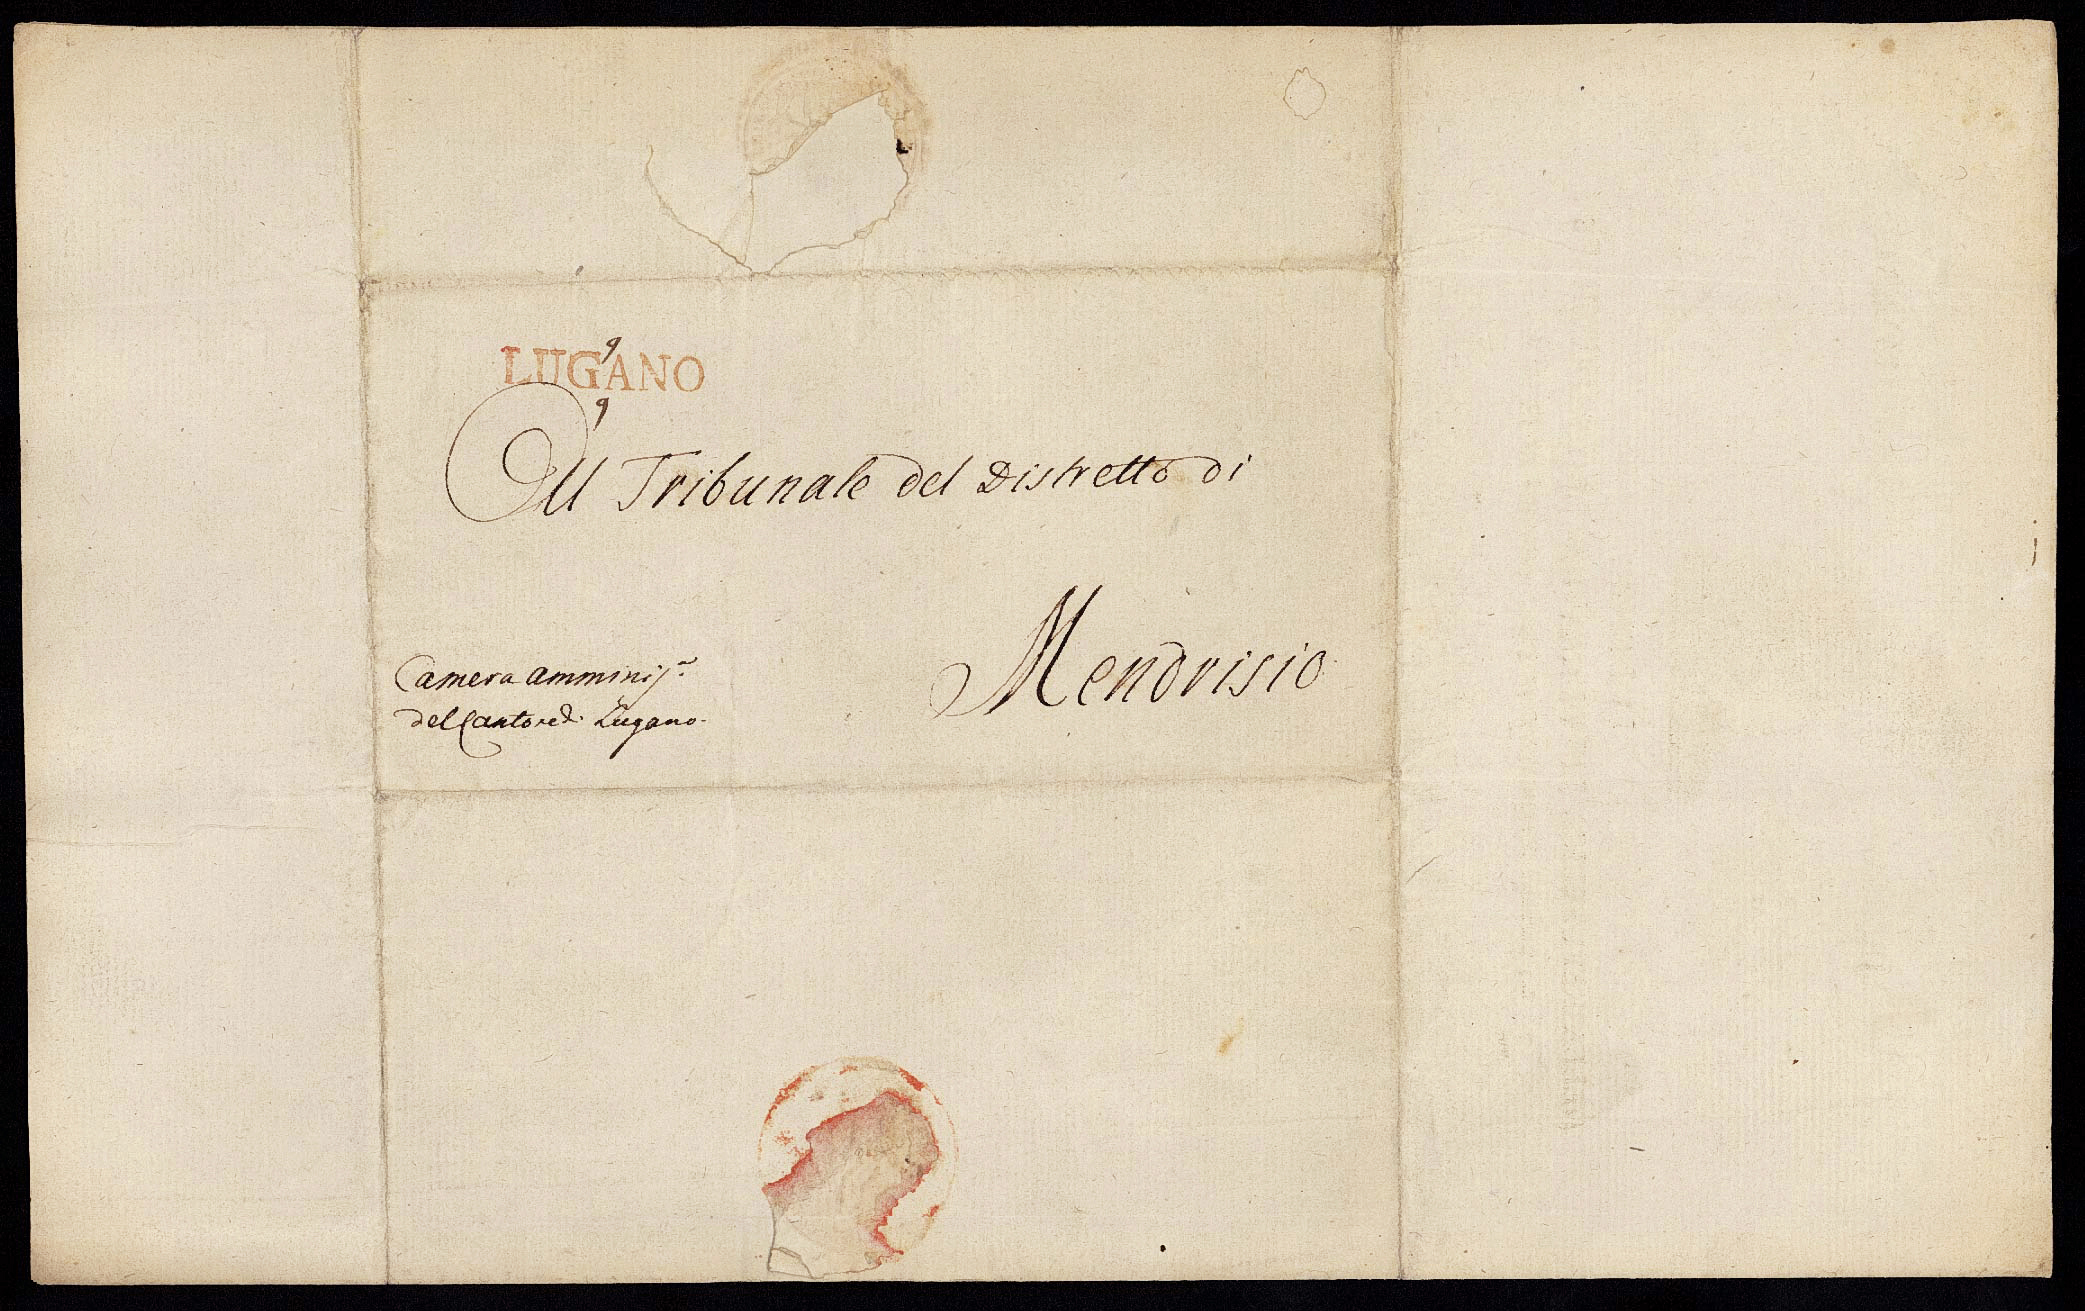 LUGANO
Al Tribunale del Distretto di
Mendrisio
Camera amminis.a
del Cantone di Lugano.